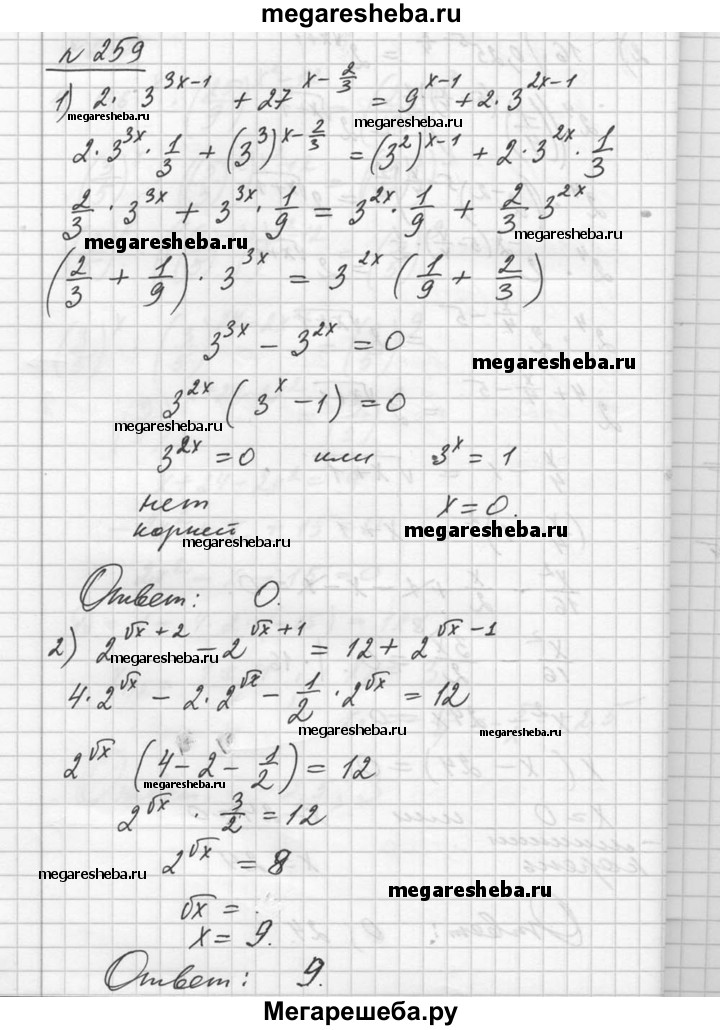 megaresheba.ru
№ 259
1) 2 · 3^(3x-1) + 27^(x - 2/3) = 9^(x-1) + 2 · 3^(2x-1)
megaresheba.ru megaresheba.ru
2 · 3^(3x) · 1/3 + (3^3)^(x - 2/3) = (3^2)^(x-1) + 2 · 3^(2x) · 1/3
2/3 · 3^(3x) + 3^(3x) · 1/9 = 3^(2x) · 1/9 + 2/3 · 3^(2x)
megaresheba.ru megaresheba.ru
(2/3 + 1/9) · 3^(3x) = 3^(2x) (1/9 + 2/3)
3^(3x) - 3^(2x) = 0
megaresheba.ru
3^(2x) (3^x - 1) = 0
megaresheba.ru
3^(2x) = 0 или 3^x = 1
нет x = 0.
корней megaresheba.ru megaresheba.ru
Ответ: 0.
2) 2^(√x + 2) - 2^(√x + 1) = 12 + 2^(√x - 1)
megaresheba.ru
4 · 2^√x - 2 · 2^√x - 1/2 · 2^√x = 12
megaresheba.ru megaresheba.ru
2^√x (4 - 2 - 1/2) = 12
megaresheba.ru
2^√x · 3/2 = 12
2^√x = 8
megaresheba.ru megaresheba.ru
√x =
x = 9.
Ответ: 9.
Мегарешеба.ру